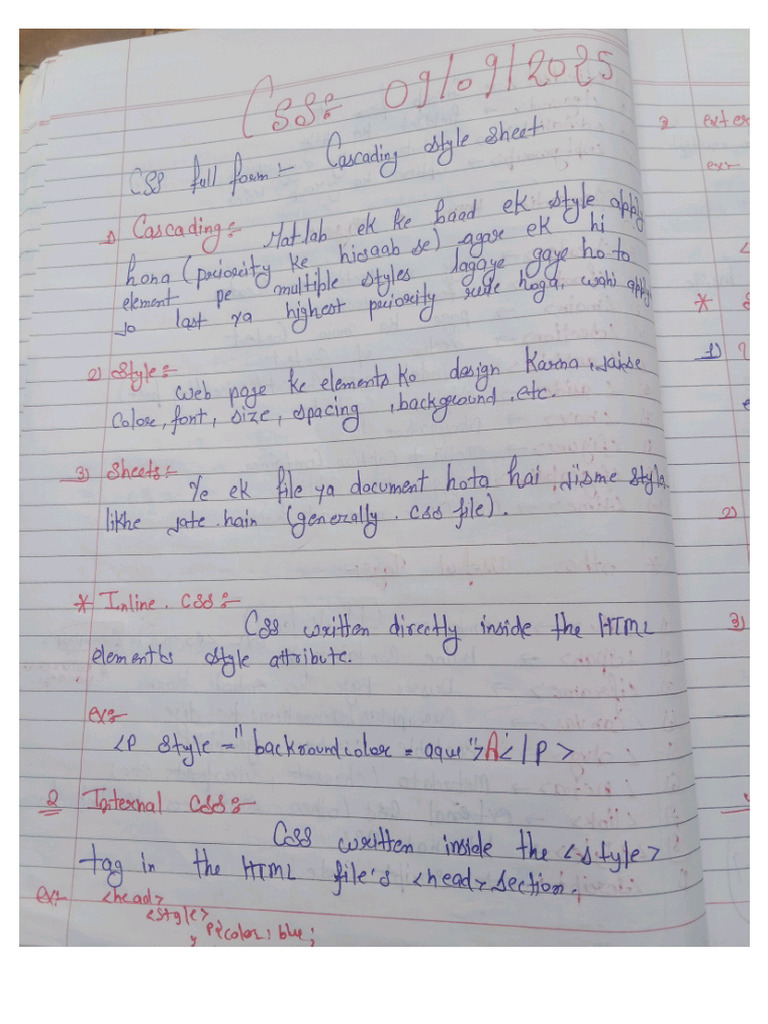 CSS:- 09/09/2025
CSS full form:- Cascading style sheet
1) Cascading:- Matlab ek ke baad ek style apply
hona (priority ke hisaab se) agar ek hi
element pe multiple styles lagaye gaye ho to
jo last ya highest priority rule hoga, wahi apply
2) Style:-
Web page ke elements ko design karna, jaise
Color, font, size, spacing, background, etc.
3) Sheets:-
Ye ek file ya document hota hai jisme style
likhe jate hain (generally .css file).
* Inline CSS:-
CSS written directly inside the HTML
elements style attribute.
ex:-
<P Style =" backroundcolor = aqua">A</P>
2 Internal CSS:-
CSS written inside the <style>
tag in the HTML file's <head> section.
ex:- <head>
<style>
P{color: blue;
3 exter
ex
*
1)
2)
3)